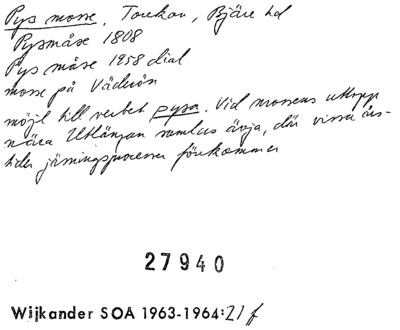 Pys mosse, Torekov, Bjäre hd
Pysmåse 1808
Pys måse 1958 dial
mosse på Väderön
möjl till verbet pysa. Vid mossens utlopp
nära Utlängan samlas ävja, där vissa års-
tider jäsningsprocesser förekommer
27940
Wijkander SOA 1963-1964:21f